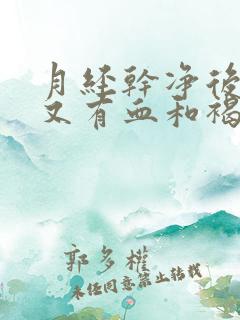 月經幹净後
又有血和褐
郭多權
未任同意禁止转载